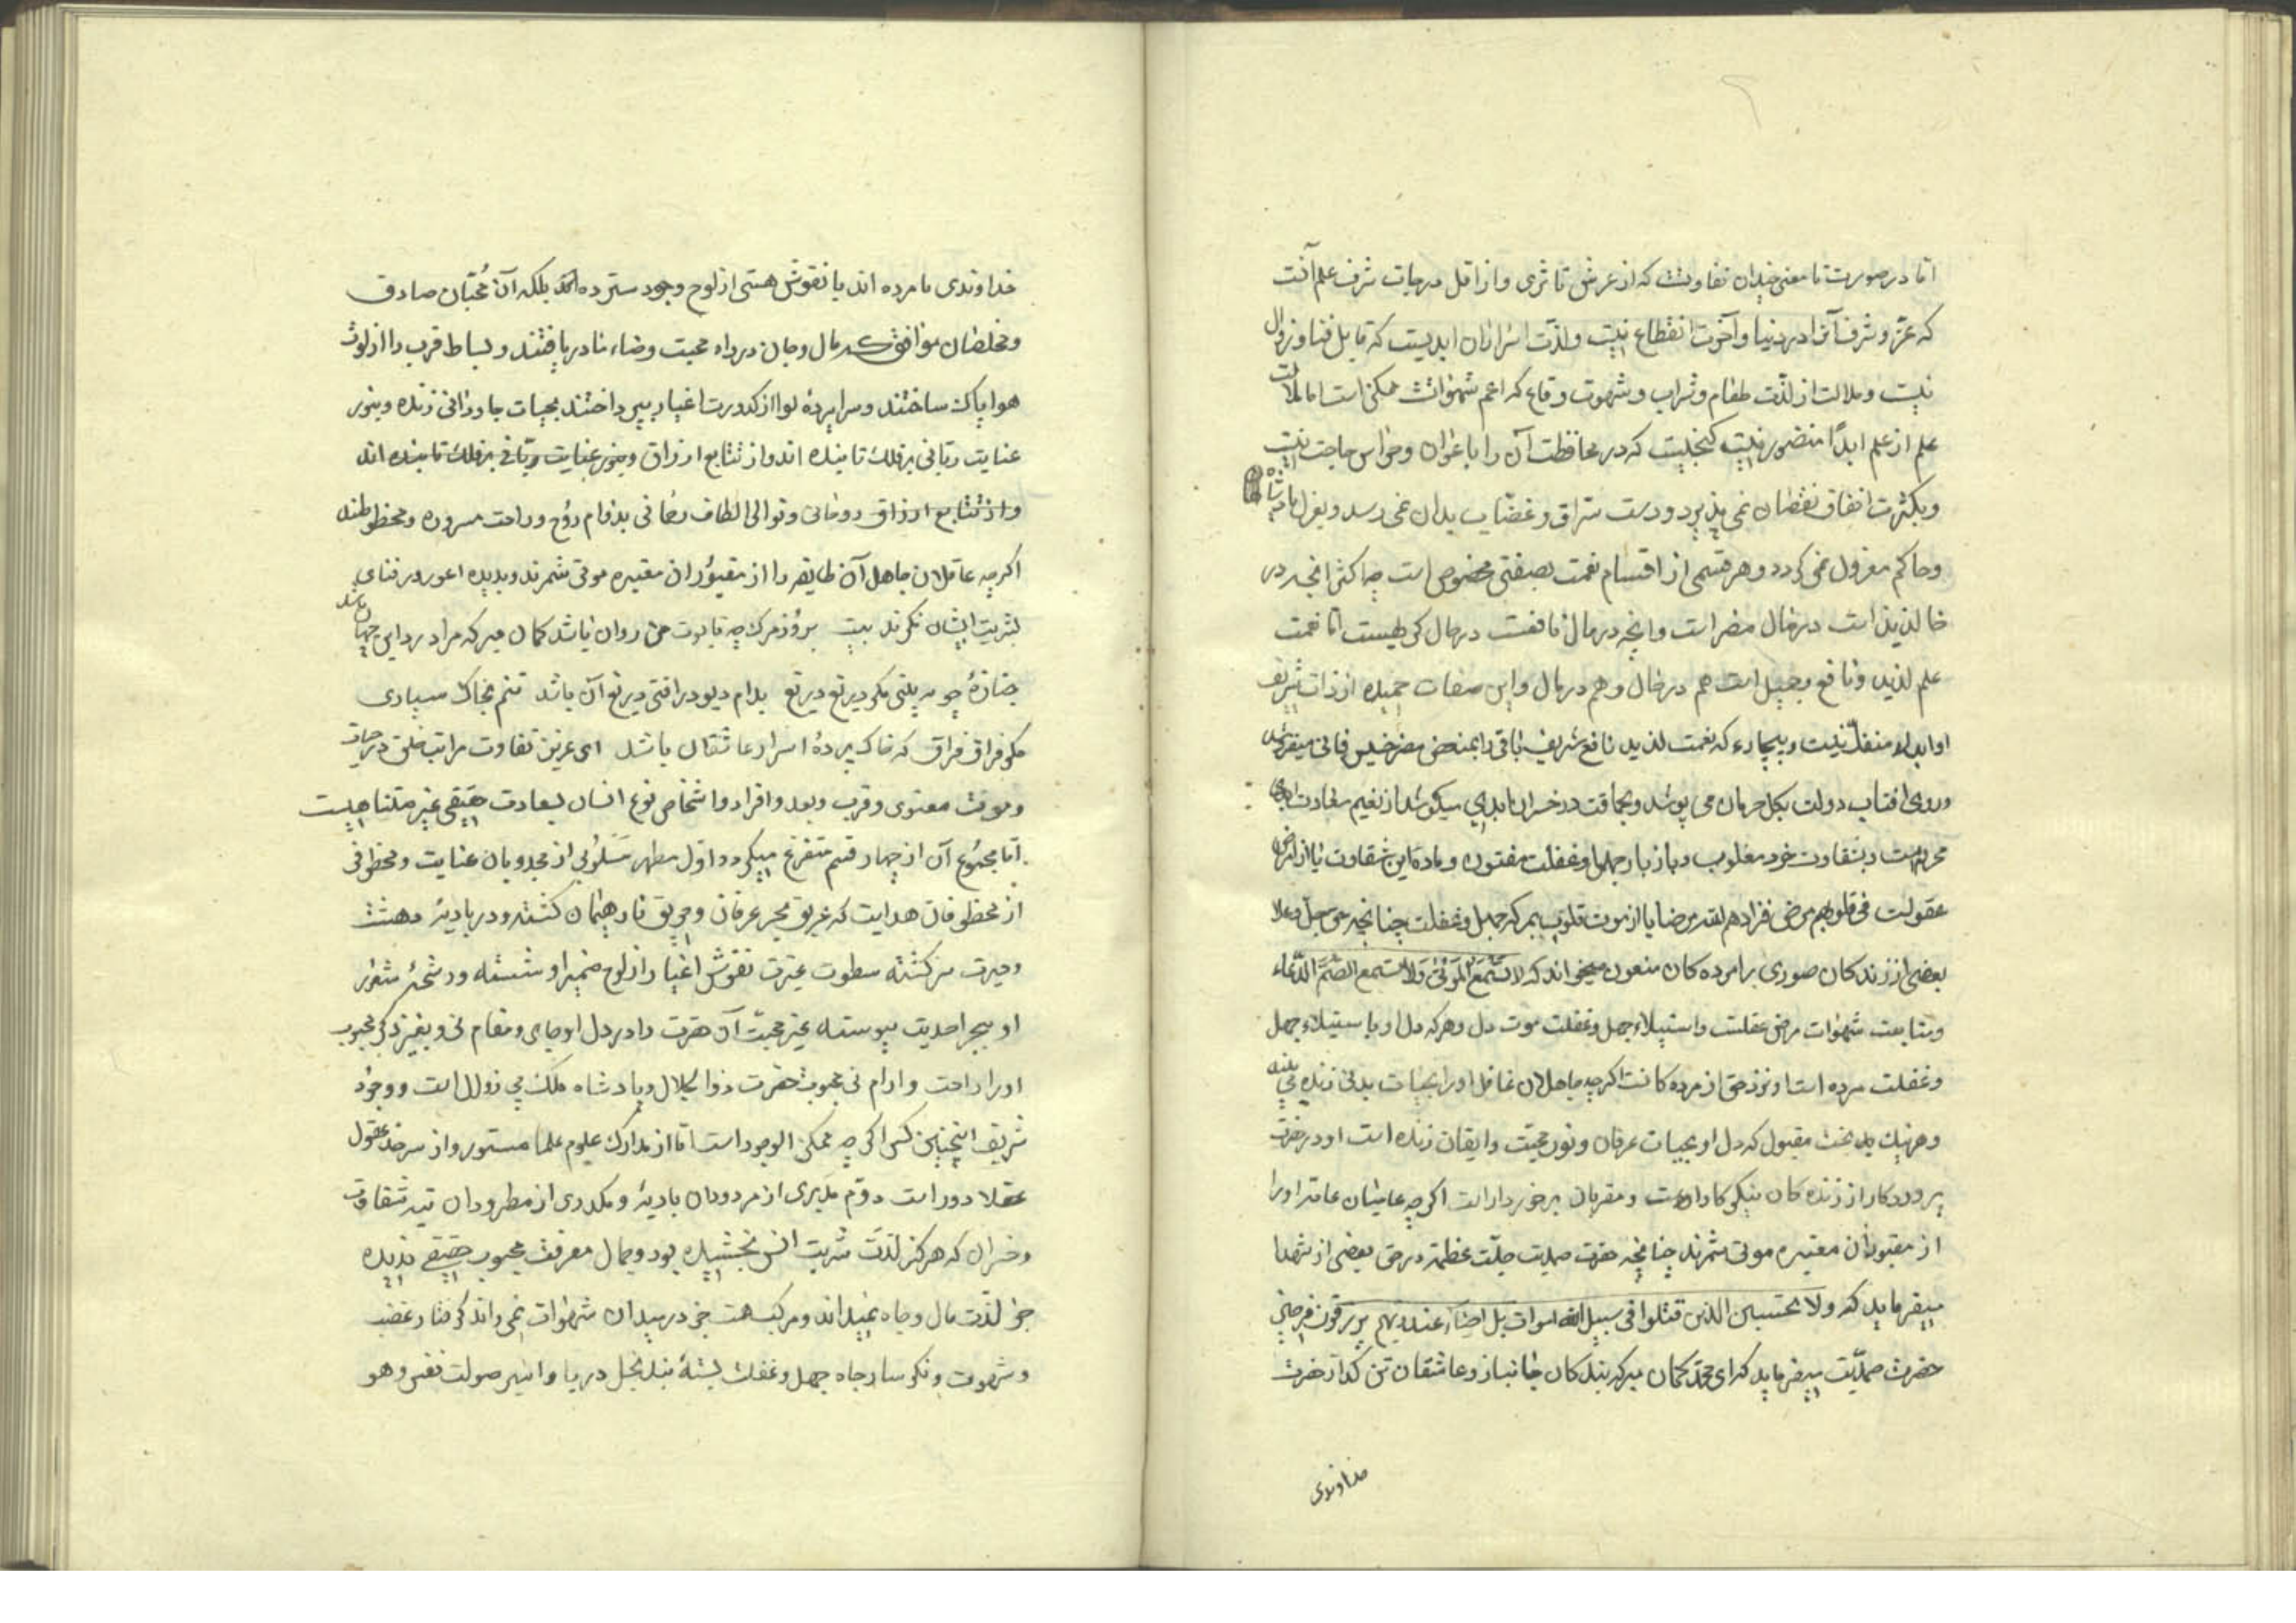 اما در صورت تا معنی چندان تفاوتست که از عرش تا ثری و از اقل درجات شرف علم آنست
که عز و شرف آنرا در دنیا و آخرت انقطاع نیست و لذت اسرار آن ابدیست که قابل فنا و زوال
نیست و ملالت از لذت طعام و شراب و شهوت وقاع که اعم شهواتست ممکن است اما ملالت
علم از علم ابدًا متصور نیست گنجیست که در محافظت آن را با عوان و حواس حاجت نیست
و بکثرت انفاق نقصان نمی پذیرد و دست سراق و غصاب بدان نمی رسد و بعزل پادشاه
و حاکم معزول نمی گردد و هر قسمی از اقسام نعمت بصفتی مخصوص است چه اکثر انچه در
حا لذیذ است در مال مضر است و انچه در مال نافعست در حال کریهست اما نعمت
علم لذیذ و نافع و جمیل است هم در حال و هم در مال و این صفات حمیده از ذات شریف
او ابدا منفک نیست و بیچاره که نعمت لذیذ نافع شریف باقی را بمنغص مضر خسیس فانی میفروشد
و روی افتاب دولت بکل حرمان می پوشد و بحماقت در خسران ابدی میکوشد از نعیم سعادت ابدی
محرومست و بشقاوت خود مغلوب و باز بار جهل و غفلت مفتون و ماده این شقاوت یا از امراض
عقولست فی قلوبهم مرض فزادهم الله مرضا یا از موت قلوب بمرکه جهل و غفلت چنانچه حق جل و علا
بعضی از زندکان صوری را مرده کان منعون میخواند که لا تسمع الموتی و لا تسمع الصم الدعاء
و متابعت شهوات مرض عقلست و استیلاء جهل و غفلت موت دل و هر که دل او باستیلاء جهل
و غفلت مرده است او نزد حق از مرده کانست اکرچه جاهلان غافل اورا بحیات بدنی زنده می بینند
و هر نیک بخت مقبول که دل او بحیات عرفان و نور محبت و ایقان زنده است او در حضرت
پروردکار از زنده کان نیکو کارانست و مقربان برخوردارست اکرچه عامیان عامه اورا
از مقبوران مقبره موتی شمرند چنانچه حضرت صمدیت جلت عظمته در حق بعضی از شهدا
میفرماید که ولا تحسبین الذین قتلوا فی سبیل الله اموات بل احیاء عند ربهم یرزقون فرحین
حضرت صمدیت میفرماید که ای محمد کمان مبر که بندکان جانباز و عاشقان تن کداز حضرت
خداوندی
خداوندی ما مرده اند یا نقوش هستی از لوح وجود سترده اند بلکه آن محبّان صادق
و مخلصان موافق که مال و جان در راه محبت و رضاء ما در باختند و بساط قرب را از لوث
هوا پاک ساختند و سراپردهٔ لوا از کدورت اغیار بپرداختند بحیات جاودانی زنده و بنور
عنایت ربانی بر فلک تابنده اند و از تتابع ارزاق و بنور عنایت ربّانی بر فلک تابنده اند
و از تتابع ارزاق روحانی و توالی الطاف رحمانی بدوام رَوْح و راحت مسرور و محظوظند
اکرچه عاقلان جاهل آن طایفه را از مقبوران مقبره موتی شمرند و بدیده اعور در فنای
بشریت ایشان نکرند بیت بروز مرک چو تابوت من روان باشد کمان مبر که مرا درد این جهان باشد
جنازهٔ چو ببینی مکو دریغ دریغ بدام دیو درافتی دریغ آن باشد تنم بخاک سپاری
مکو فراق فراق که خاک پردهٔ اسرار عاشقان باشد ای عزیز تفاوت مراتب خلق در حیات
و موت معنوی و قرب و بعد و افراد و اشخاص نوع انسان بسعادت حقیقی غیر متناهیست
اما مجموع آن از چهار قسم متفرع میکردد اول مطهر مسلوبی از مجذوبان عنایت و محظوظی
از محظوظان هدایت که غریق بحر عرفان و حریق نار هیمان کشته و در بادیهٔ دهشت
و حیرت سرکشته سطوت غیرت نقوش اغیار از لوح ضمیر او شسته و رشحهٔ شعور
او ببحر احدیت پیوسته غیر محبّت آن حضرت را در دل او جای و مقام نی و بغیر ذکر محبوب
اورا راحت و ارام نی محبوب حضرت ذوالجلال و پادشاه ملک بی زوال است و وجود
شریف اینچنین کس اکرچه ممکن الوجود است اما از مدارک علوم علما مستور و از سرحد عقول
عقلا دور است دوّم مدبری از مردودان بادیهٔ و مکدری از مطرودان تیه شقاوت
و خسران که هرکز لذت شربت انس نچشیده بود و جمال معرفت محبوب حقیقی ندیده
جز لذت مال و جاه نمیداند و مرکب همت جز در میدان شهوات نمی راند کرفتار غضب
و شهوت و نکوسار چاه جهل و غفلت بستهٔ بند بخل و ریا و اسیر صولت نفس و هو